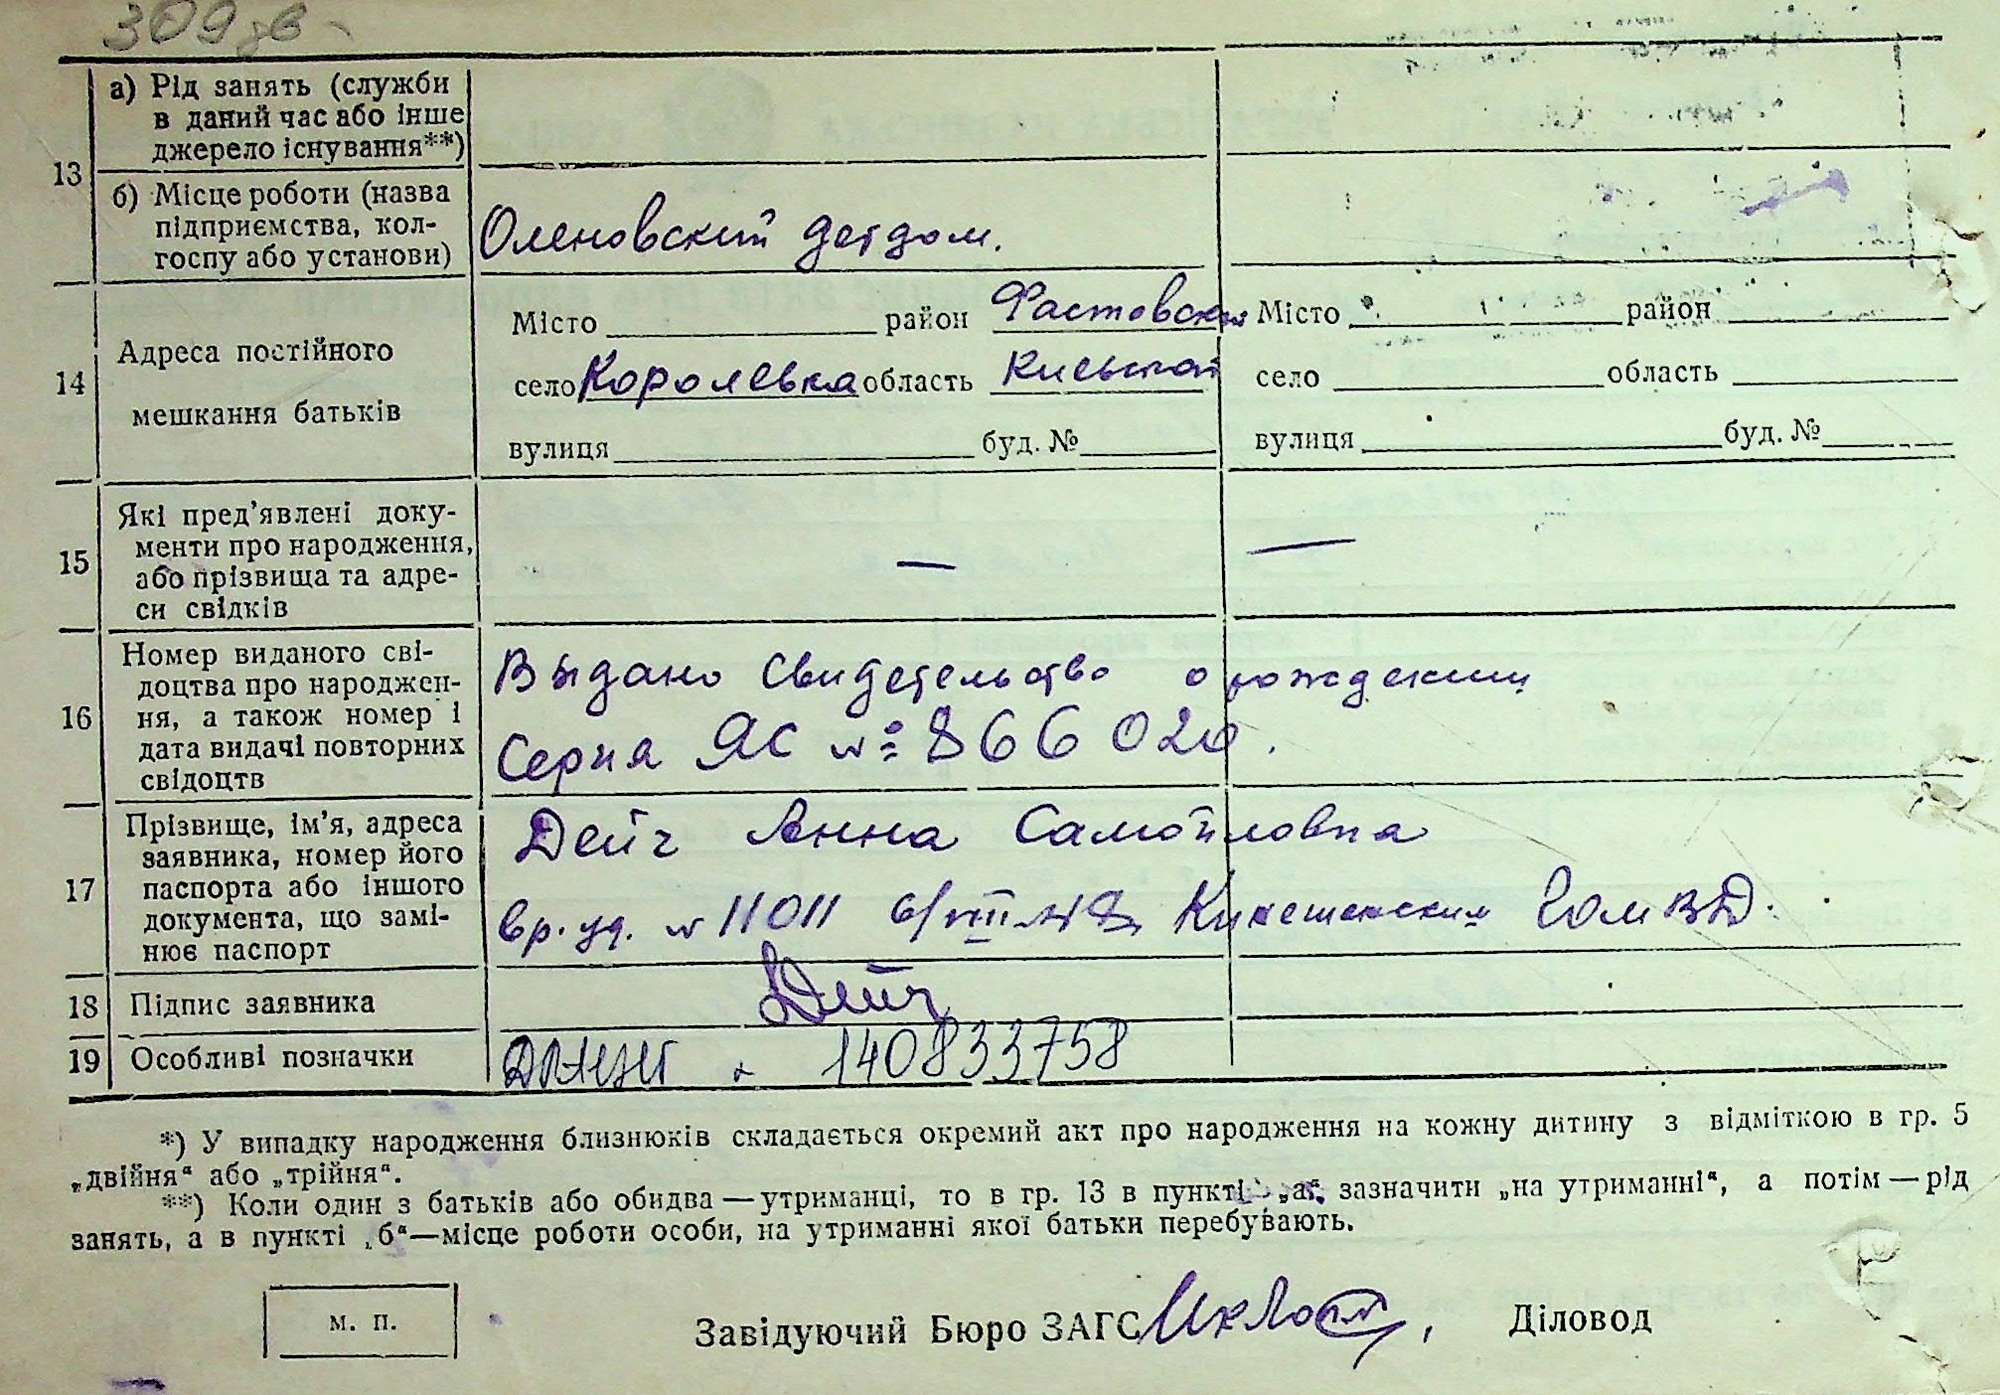 309 зв
13
а) Рід занять (служби
в даний час або інше
джерело існування**)
б) Місце роботи (назва
підприємства, кол-
госпу або установи)
Оленовский детдом.
14
Адреса постійного
мешкання батьків
Місто район Фастовский
село Королевка область Киевской
вулиця буд. №
Місто район
село область
вулиця буд. №
15
Які пред’явлені доку-
менти про народження,
або прізвища та адре-
си свідків
— —
16
Номер виданого сві-
доцтва про народжен-
ня, а також номер і
дата видачі повторних
свідоцтв
Выдано Свидетельство о рождении
Серия ЯС № 866020.
17
Прізвище, ім’я, адреса
заявника, номер його
паспорта або іншого
документа, що замі-
нює паспорт
Дейч Анна Самойловна
вр. уд. № 11011 Кинешемским ГОМВД.
18 Підпис заявника Дейч
19 Особливі позначки 140833758
*) У випадку народження близнюків складається окремий акт про народження на кожну дитину з відміткою в гр. 5
„двійня“ або „трійня“.
**) Коли один з батьків або обидва — утриманці, то в гр. 13 в пункті „а“ зазначити „на утриманні“, а потім — рід
занять, а в пункті „б“ — місце роботи особи, на утриманні якої батьки перебувають.
м. п.
Завідуючий Бюро ЗАГС Діловод